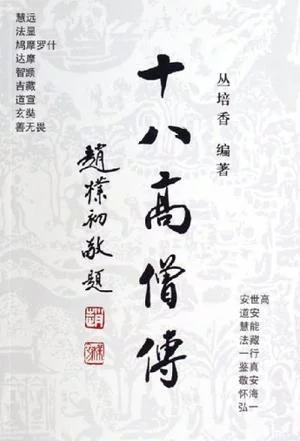 慧远
法显
鸠摩罗什
达摩
智顗
吉藏
道宣
玄奘
善无畏
丛培香 编著
十八高僧傳
趙樸初敬題
趙
安世高
道安
慧能
法藏
一行
鉴真
敬安
怀海
弘一